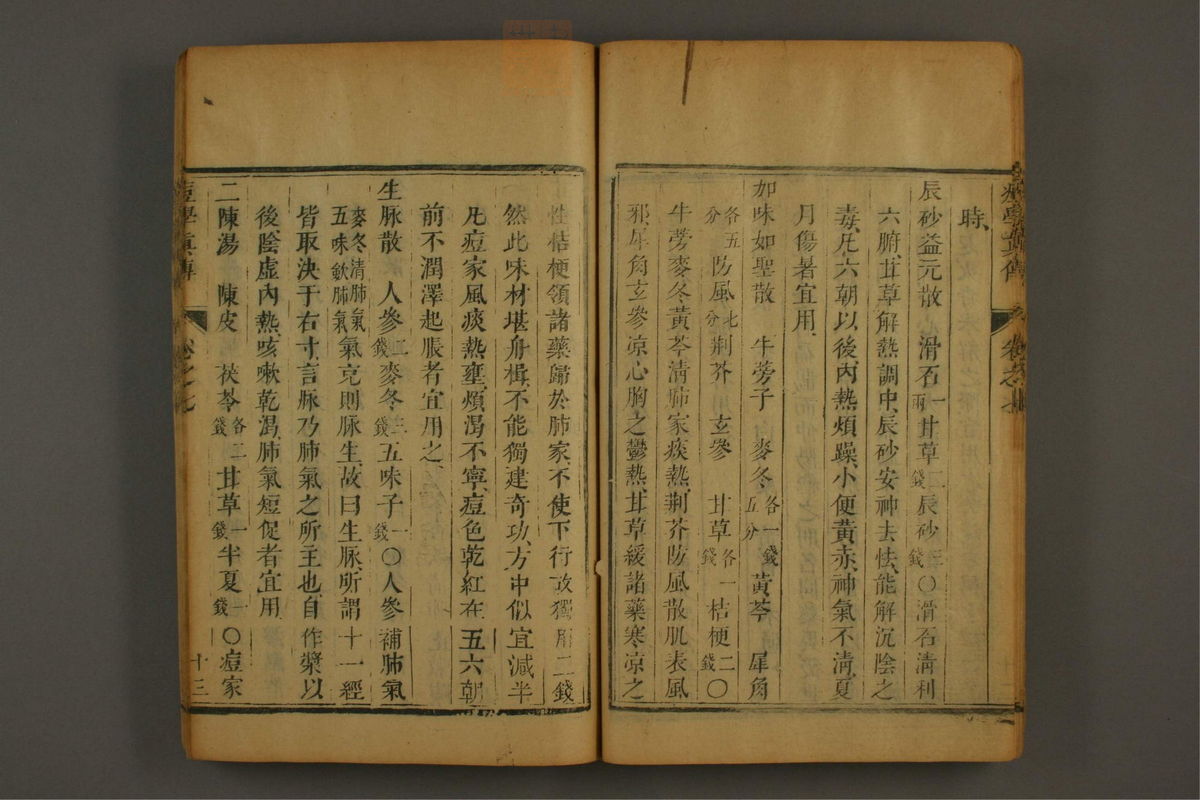 時、
辰砂益元散 滑石一兩甘草二錢辰砂三錢〇滑石淸利
六腑、甘草解熱調中、辰砂安神去怯、能解沉陰之
毒、凡六朝以後、內熱煩躁、小便黃赤、神氣不淸、夏
月傷暑宜用、
如味如聖散 牛蒡子 麥冬各一錢五分黃芩 犀角
各五分防風七分荆芥 玄參 甘草各一錢桔梗二錢〇
牛蒡麥冬黃芩淸肺家痰熱、荆芥防風散肌表風
邪、犀角玄參凉心胸之鬱熱、甘草緩諸藥寒凉之
性桔梗領諸藥歸於肺家、不使下行、故獨用二錢
然此味材堪舟楫、不能獨建奇功、方中似宜減半
凡痘家風痰熱壅、煩渴不寧、痘色乾紅、在五六朝
前不潤澤起脹者宜用之
生脉散 人參二錢麥冬三錢五味子一錢〇人參補肺氣
麥冬淸肺氣五味斂肺氣氣充則脉生、故曰生脉、所謂十一經
皆取決于右寸、言脉乃肺氣之所主也、自作漿以
後、陰虛內熱、咳嗽乾渴、肺氣短促者宜用
二陳湯 陳皮 茯苓各二錢甘草一錢半夏一錢〇痘家
痘學眞傳
卷之七
十三